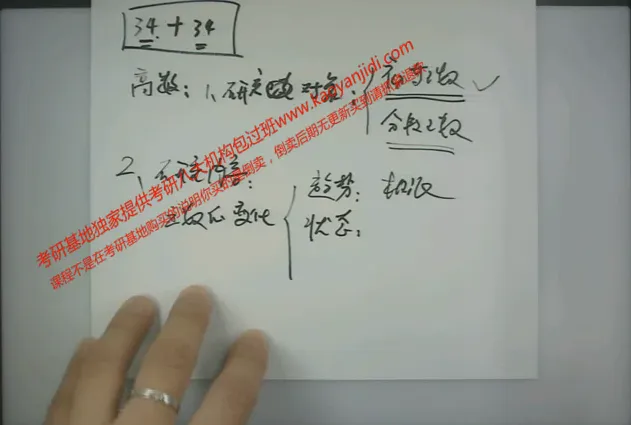 34 + 34
高数: 1、研究 对象: { 初等函数 ✓
分段函数
2、研究内容:
函数的变化 { 趋势: 极限
状态:
考研基地独家提供考研 机构包过班www.kaoyanjidi.com
课程不是在考研基地购买的说明你买的是倒卖，倒卖后期无更新买到请